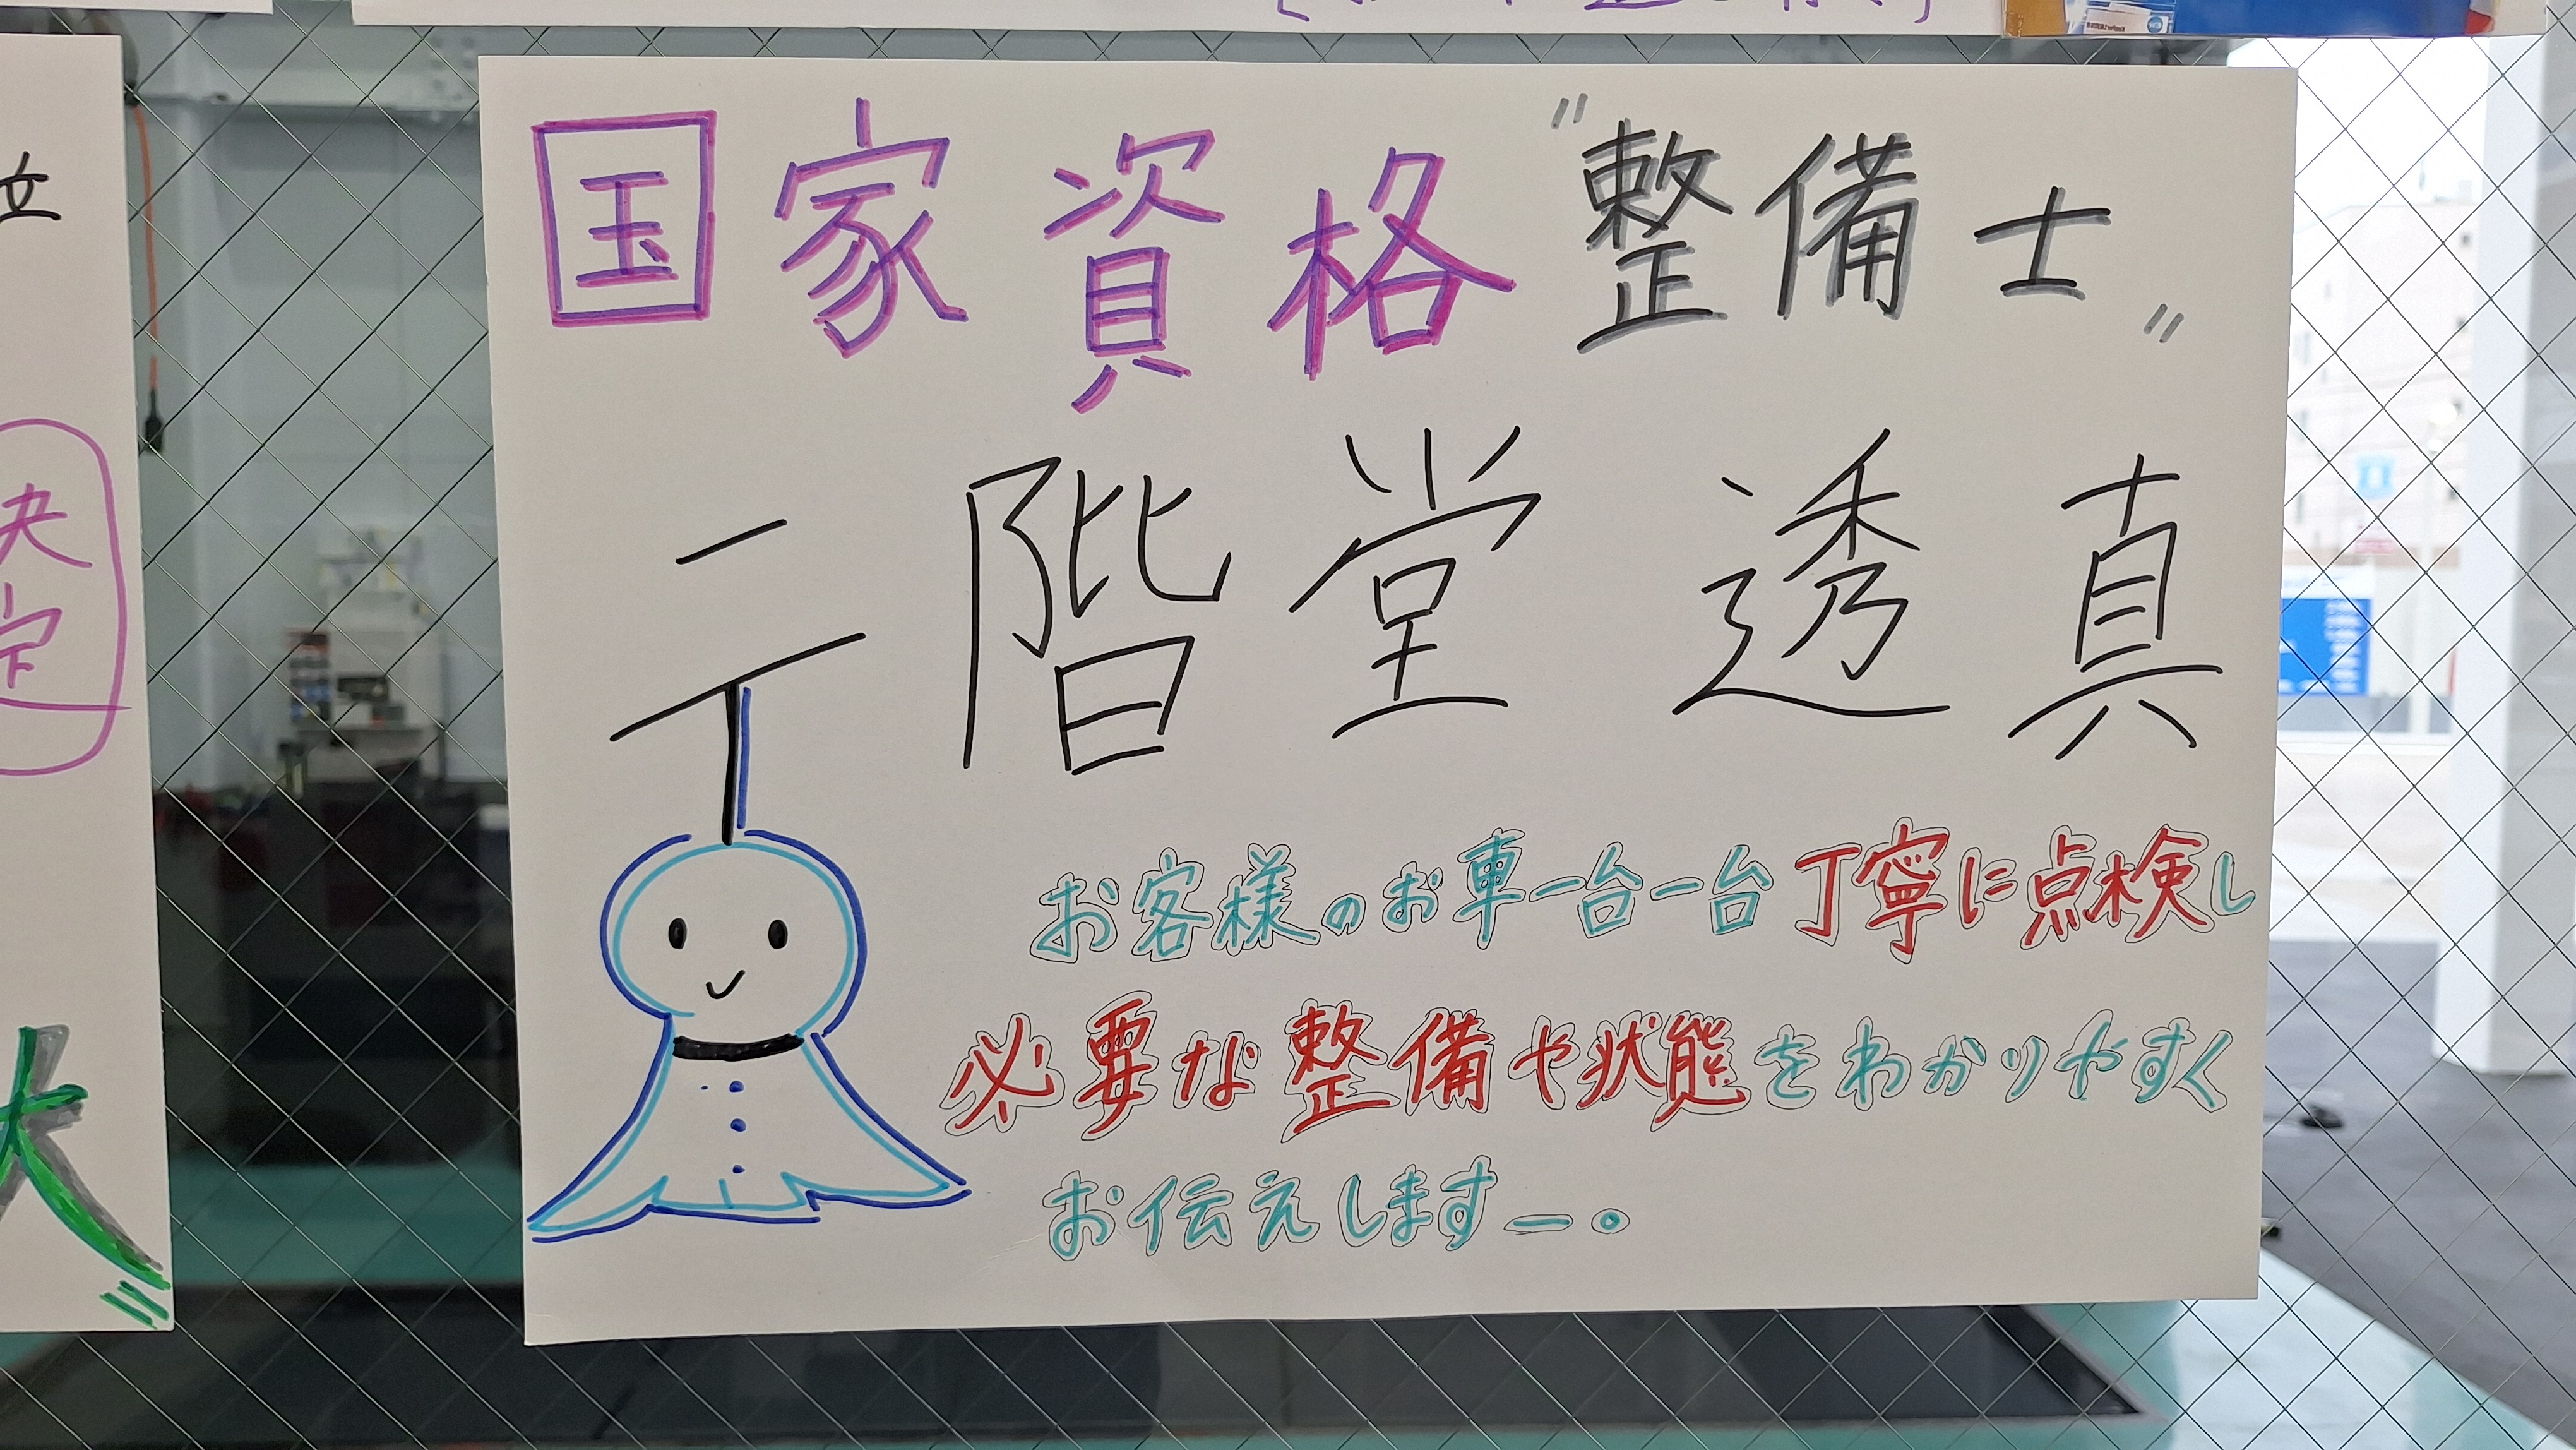 国家資格〃整備士〃
二階堂 透真
お客様のお車一台一台丁寧に点検し
必要な整備や状態をわかりやすく
お伝えしますー。
立
決定
大